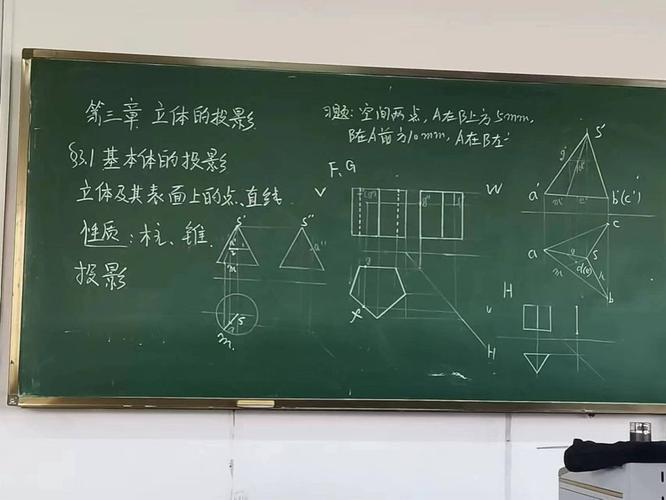 第三章 立体的投影
§3.1 基本体的投影
立体及其表面上的点、直线
性质：柱、锥
投影
习题：空间两点，A在B上方5mm，
B在A前方10mm，A在B左
F、G
V
W
s'
s"
a"
m
s
m
H
s'
a'
m'
b'(c')
c
a
s
m
b
H